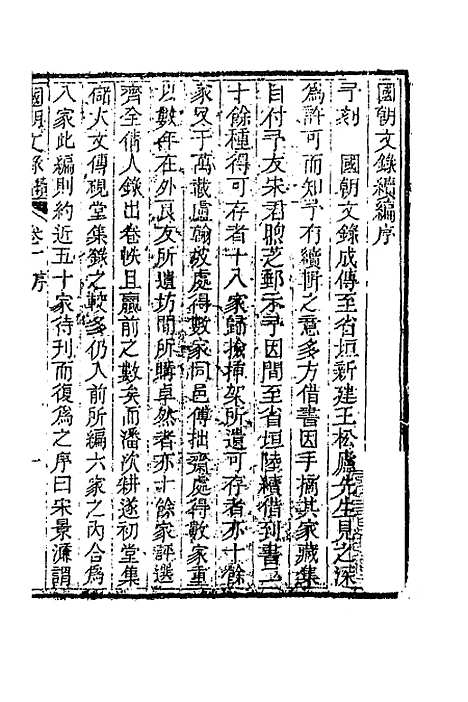 國朝文錄續編序
予刻　國朝文錄成傳至省垣新建王松廬先生見之深
為許可而知予有續斯之意多方借書因手摘其家藏集
目付予友朱君煦芝郵示予因間至省垣陸續借到書二
十餘種得可存者十八家歸撿插架所遺可存者亦十餘
家又于萬載盧翰坡處得數家同邑傅拙齋處得數家重
以數年在外良友所遺坊間所購卓然者亦十餘家評選
齊全倩人錄出卷帙且贏前之數矣而潘次耕遂初堂集
儲大文傳硯堂集錄之較多仍入前所編六家之內合為
八家此編則約近五十家待刊而復為之序曰宋景濂謂
國朝文錄續　卷一序　一